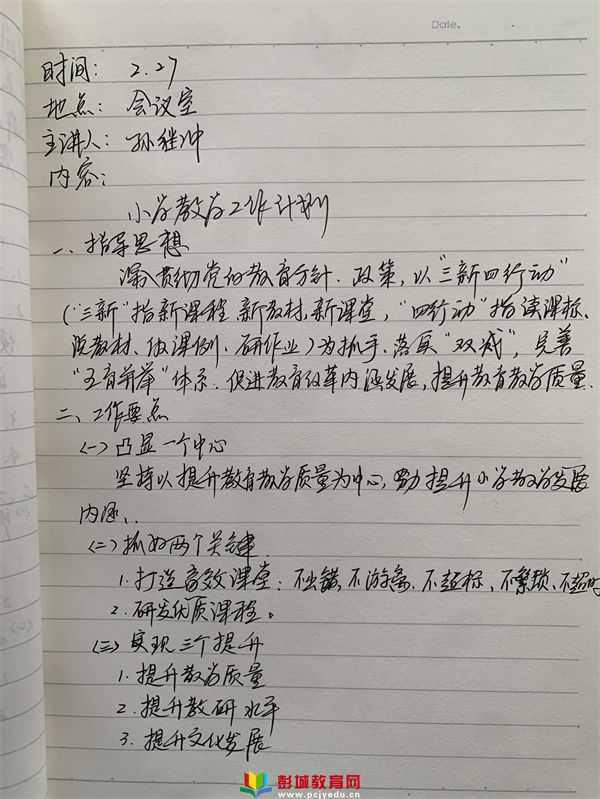 Date.
时间: 2.27
地点: 会议室
主讲人: 孙继冲
内容:
小学教学工作计划
一、指导思想
深入贯彻党的教育方针、政策,以"三新四行动"
("三新"指新课程、新教材、新课堂,"四行动"指读课标、
说教材、做课例、研作业)为抓手,落实"双减",完善
"五育并举"体系,促进教育改革内涵发展,提升教育教学质量.
二、工作要点
(一)凸显一个中心
坚持以提升教育教学质量为中心,努力提升小学教学发展
内涵、
(二)抓好两个关键.
1.打造高效课堂:不出错、不游离、不超标、不繁琐、不超时
2.研发优质课程。
(三)实现三个提升
1.提升教学质量
2.提升教研水平
3.提升文化发展
彭城教育网
www.pcjyedu.cn